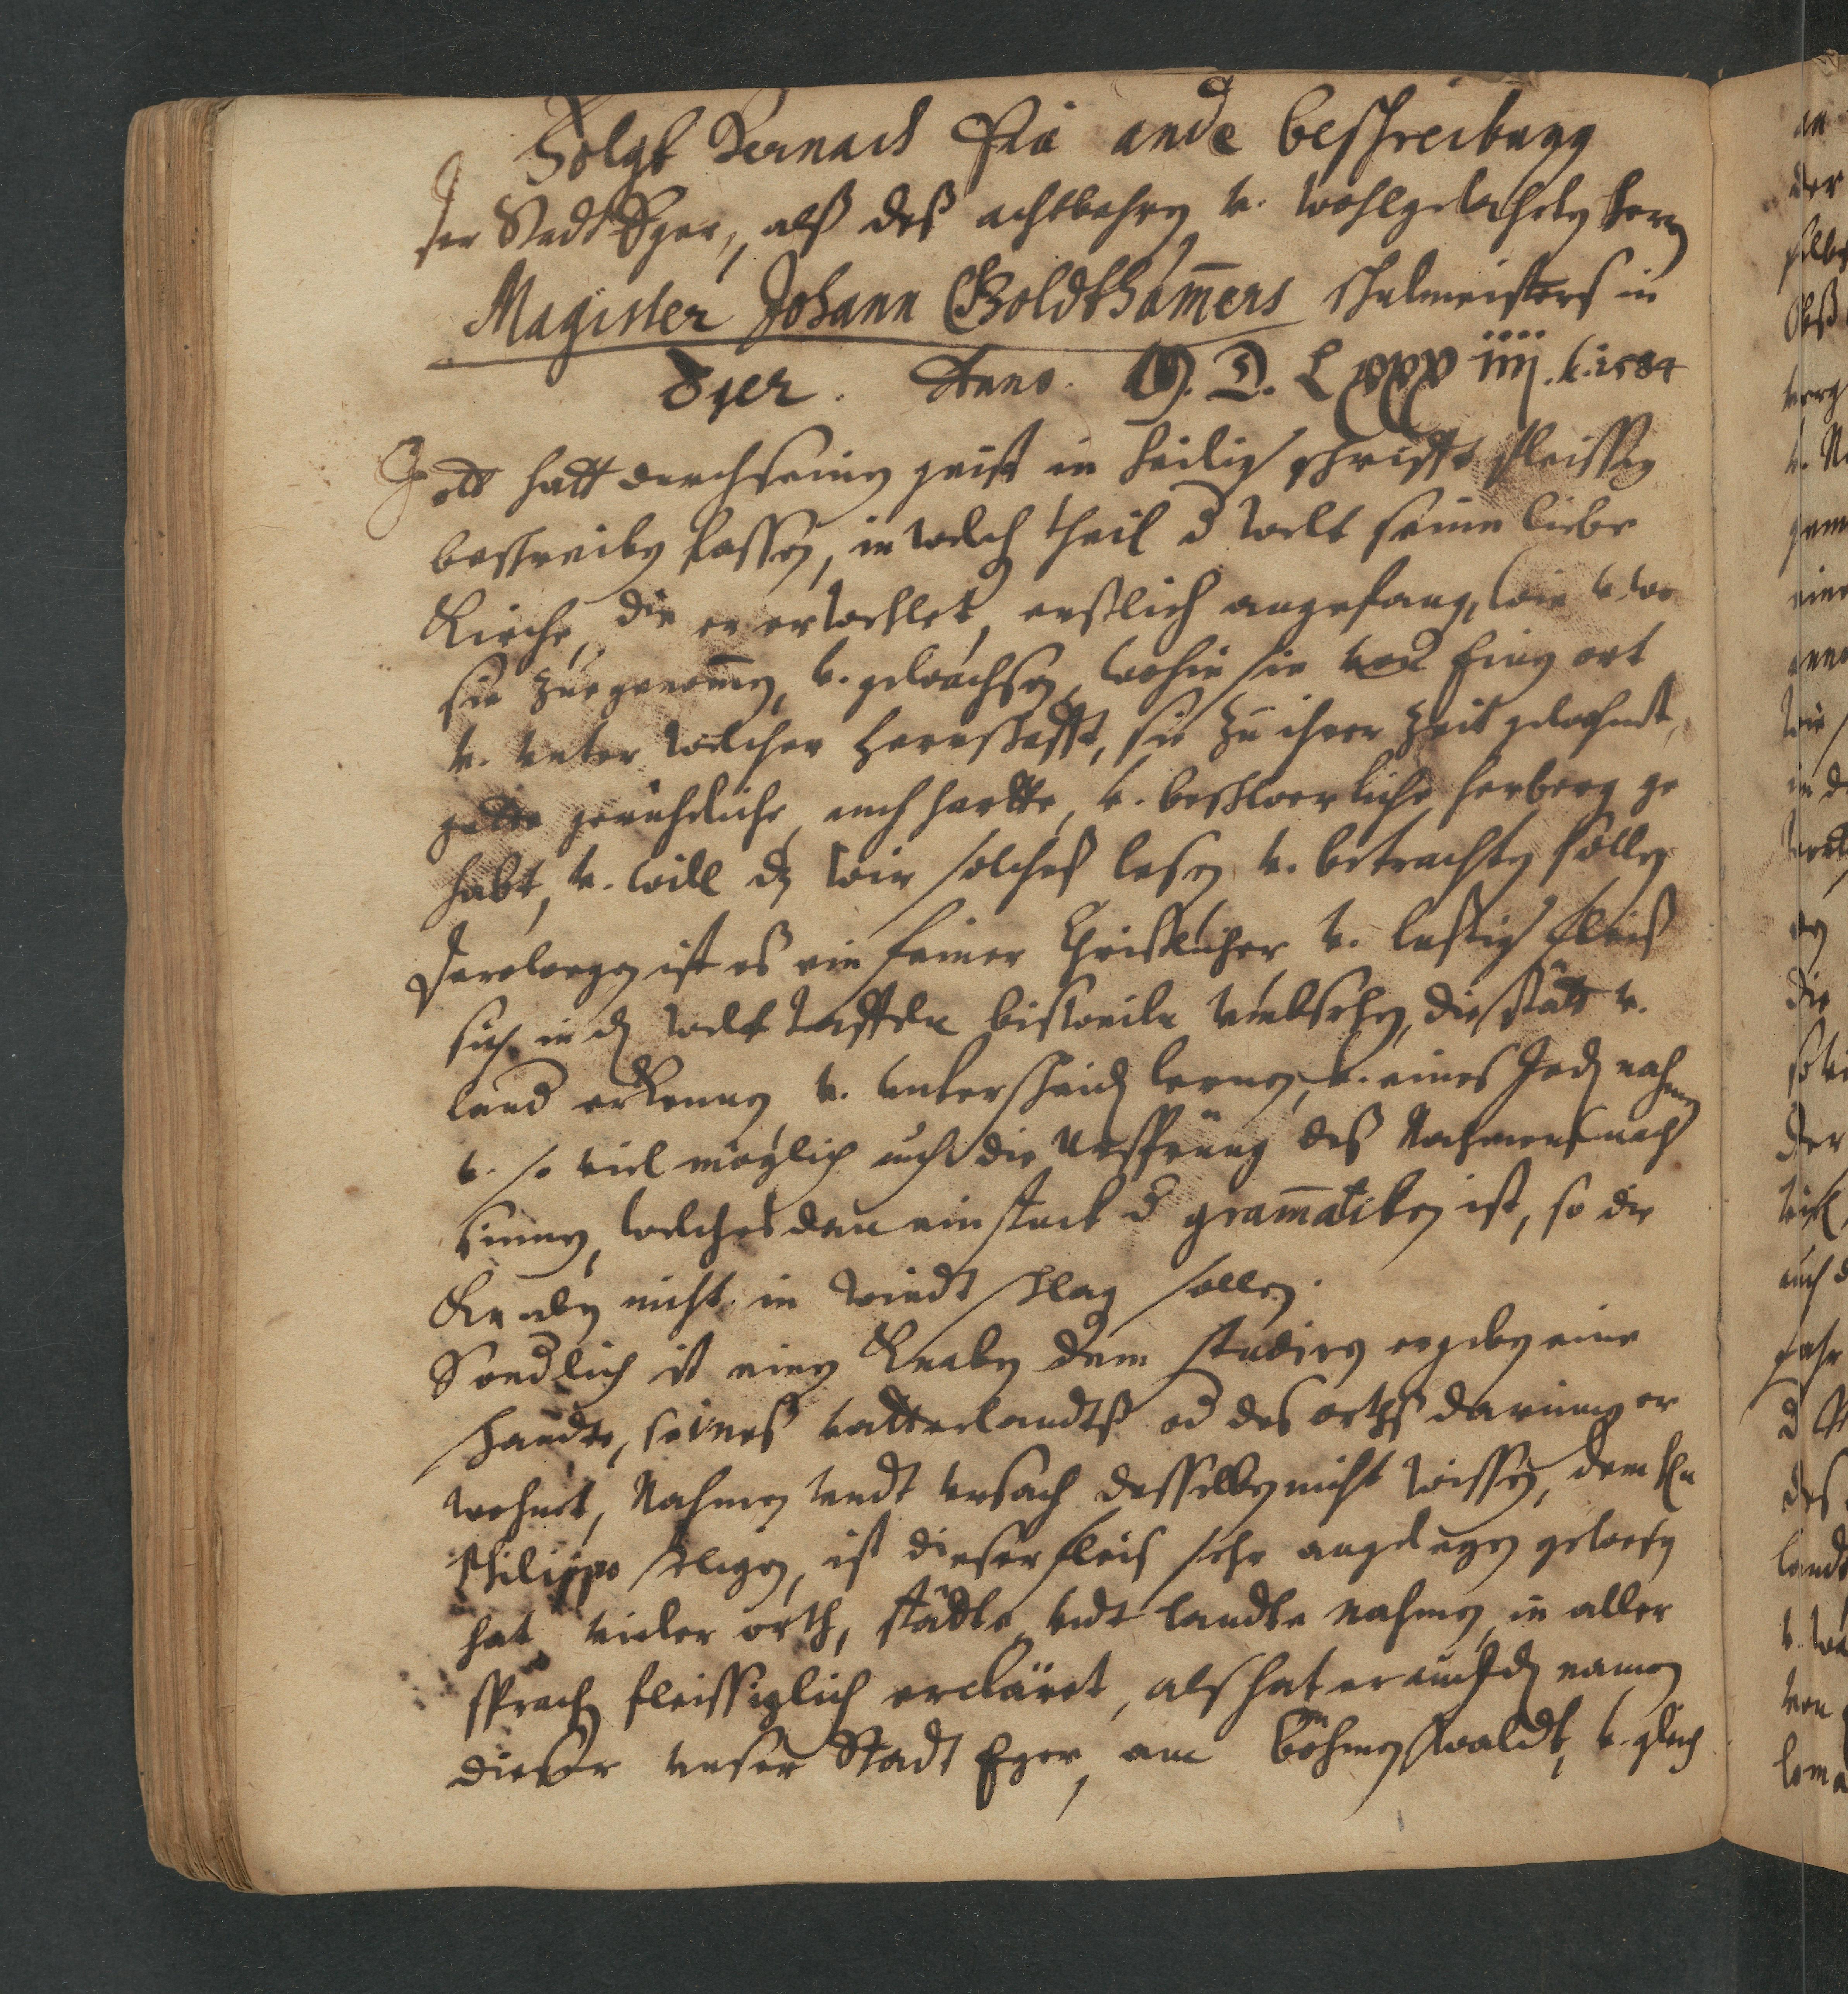 Folgt Dernach Ein ande beschreibung
der Stadt Eger, alß deß achtbahrn v. wohlgelehrten herrn
Magister Johann Goldthamers schulmeisters in
Eger. Anno M. D. Lxxx iiij. k. 1584
Gott hatt durch seinen geist in heilig schrifft fleissig
beschreiben lassen, in welch theil d welt seine liebe
Kirche, die er erwehlet, erstlich angefang, wie v. wo
sie zugenomen, v. gewachsen, wohin sie von einen ort
v. vnter welcher Herrschafft, sie zu ihrer zeit gewohnet,
gutte geruhliche, auch hartte, v. beschwerliche herberg ge
habt, v. will dz wir solches lesen v. betrachten sollen
Derowegen ist es ein feiner Christlicher v. lustig fleiß
sich in d welt Taffeln bisweiln vmbsehen, die stätt v.
land erkennen v. vnterscheid lernen, v. eines Jed nahmen
v. so viel möglich auch die Vrsprung deß Nahmens nach
sinnen, welches dan ein stuck d gramatiken ist, so die
Knaben nicht in windt schlag sollen.
Sondlich ist einen Knaben dem studiren ergeben eine
schande, seines vatterlandtß od des orths darinnen er
wohnet, Nahmen vndt vrsach desselben nicht wissen, dem hn
Philippo seligen, ist dieser fleis sehr angelegen gewesen
hat vieler orth, städte vndt landte nahmen, in aller
sprach fleissiglich erclärt, als hat er auch d namen
dieser vnser Stadt Eger, am Böhmer waldt, v. gleich